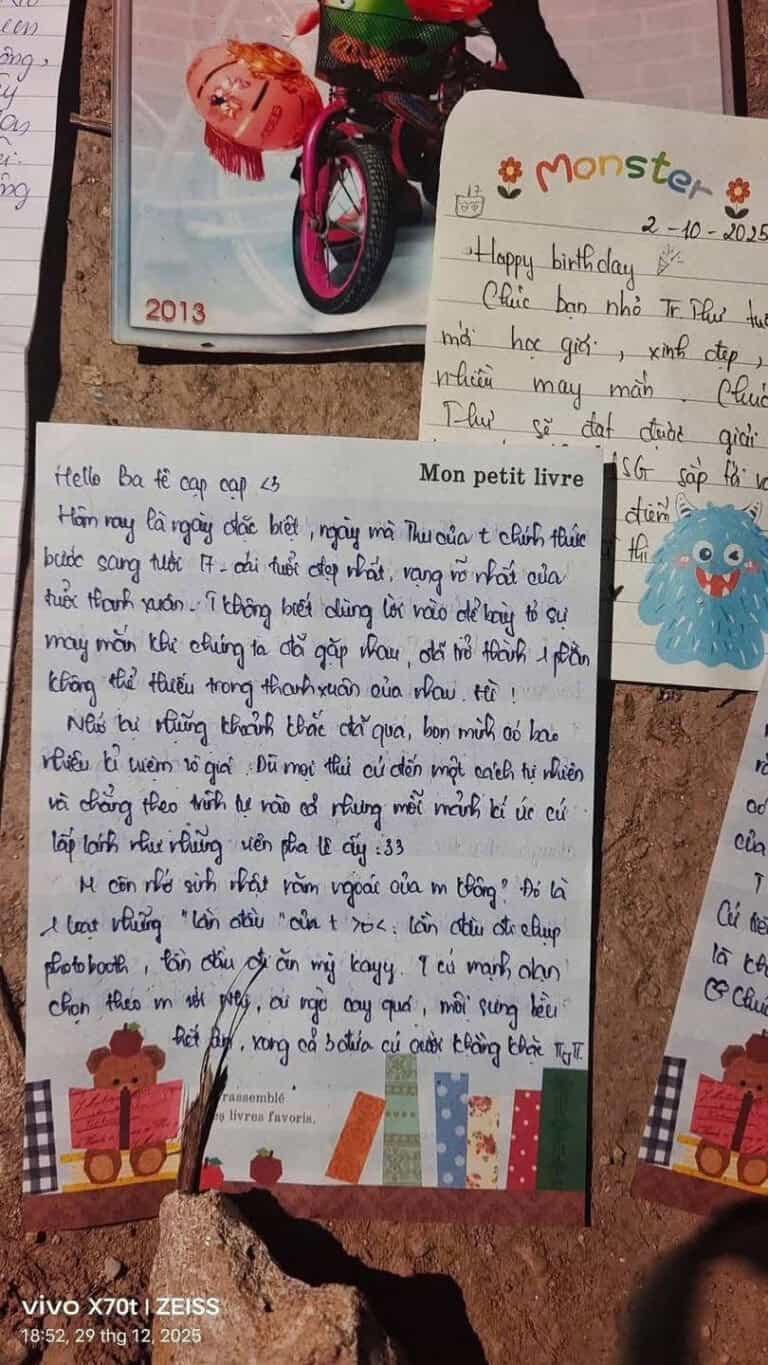 een
ông,
2013
Monster
17
2-10-2025
Happy birthday
Chúc bạn nhỏ Tr. Thư
mới học giỏi, xinh đẹp,
nhiều may mắn. Chúc
Thư sẽ đạt được giải
HSG sắp tới
điểm
thi
Mon petit livre
Hello Ba tê cạp cạp <3
Hôm nay là ngày đặc biệt, ngày mà Thư của t chính thức
bước sang tuổi 17 - cái tuổi đẹp nhất, rạng rỡ nhất của
tuổi thanh xuân. T không biết dùng lời nào để bày tỏ sự
may mắn khi chúng ta đã gặp nhau, đã trở thành 1 phần
không thể thiếu trong thanh xuân của nhau. Hì!
Nhớ lại những khoảnh khắc đã qua, bọn mình có bao
nhiêu kỉ niệm vô giá. Dù mọi thứ cứ đến một cách tự nhiên
và chẳng theo trình tự nào cả nhưng mỗi mảnh kí ức cứ
lấp lánh như những viên pha lê ấy :33
M còn nhớ sinh nhật năm ngoái của m không? Đó là
1 loạt những "lần đầu" của t >o<: lần đầu đi chụp
photobooth, lần đầu đi ăn mỳ kayy. T cứ mạnh dạn
chọn theo m với, ai ngờ cay quá, môi sưng đều
hết lên, xong cả 3 đứa cứ cười khằng khặc
rassemblé
es livres favoris.
của
T
Cứ
là
Chúc
vivo X70t | ZEISS
18:52, 29 thg 12, 2025